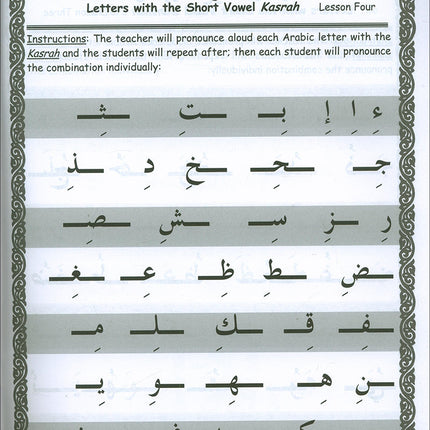 Letters with the Short Vowel Kasrah Lesson Four
Instructions: The teacher will pronounce aloud each Arabic letter with the
Kasrah and the students will repeat after; then each student will pronounce
the combination individually:
ءِ اِ إِ بِـ ـتِ ـثِـ
جِـ ـحِـ ـخِ دِ ـذِ
رِ ـزِ سِـ ـشِ ـصِـ
ـضِ ـطِـ ظِـ عِـ ـغِـ
ـفِـ قِـ ـكِ ـلِـ مِـ
ـنِ هِـ ـهِـ ـوِ يِـ